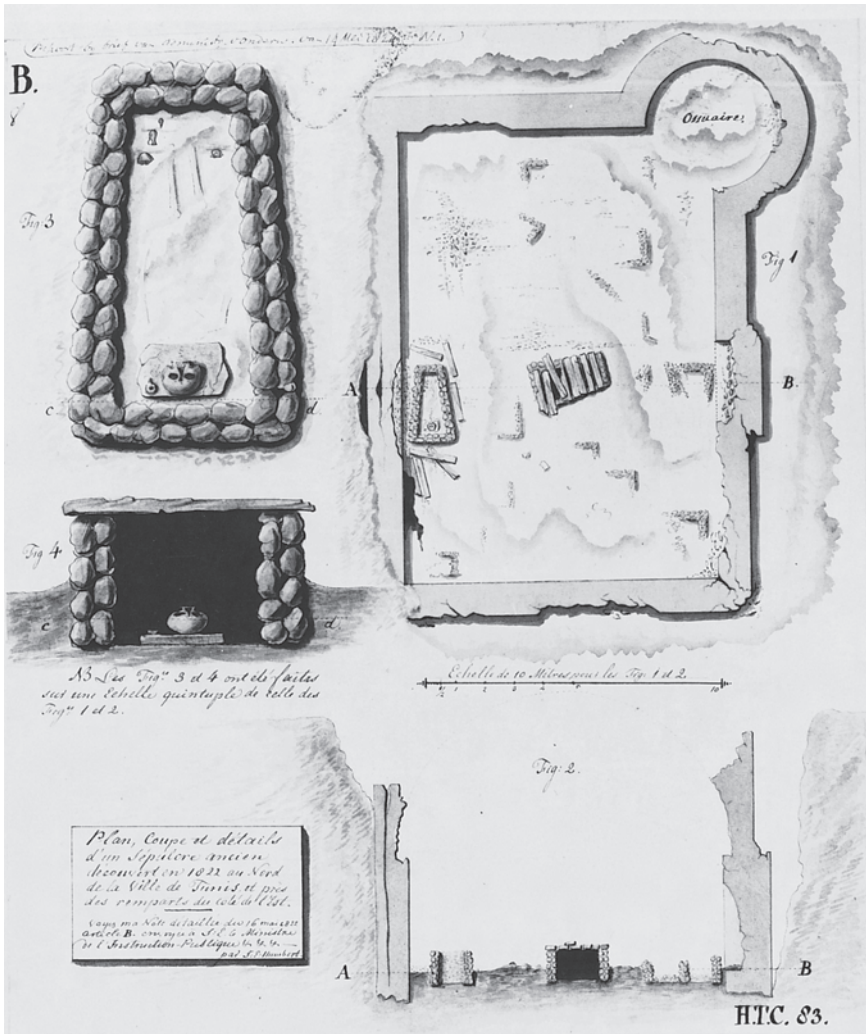 B.
Fig: 3
c
d.
Fig 4
c
d.
NB Les Figes 3 et 4 ont été faites
sur une Echelle quintuple de celle des
Figes 1 et 2.
Ossuaire,
Fig 1
A
B.
Echelle de 10 Mètres pour les Fig: 1 et 2
1
2
3
10
Fig: 2.
Plan, Coupe et détails
d'un Sépulcre ancien
découvert en 1822 au Nord
de la Ville de Tunis, et près
des remparts du coté de l'Est.
Voyez ma Note détaillée du 16 mai 1822
article B. envoyée à S.E. le Ministre
de l'Instruction Publique &. &. &. —
par J. E. Humbert
A
B
H.T.C. 83.